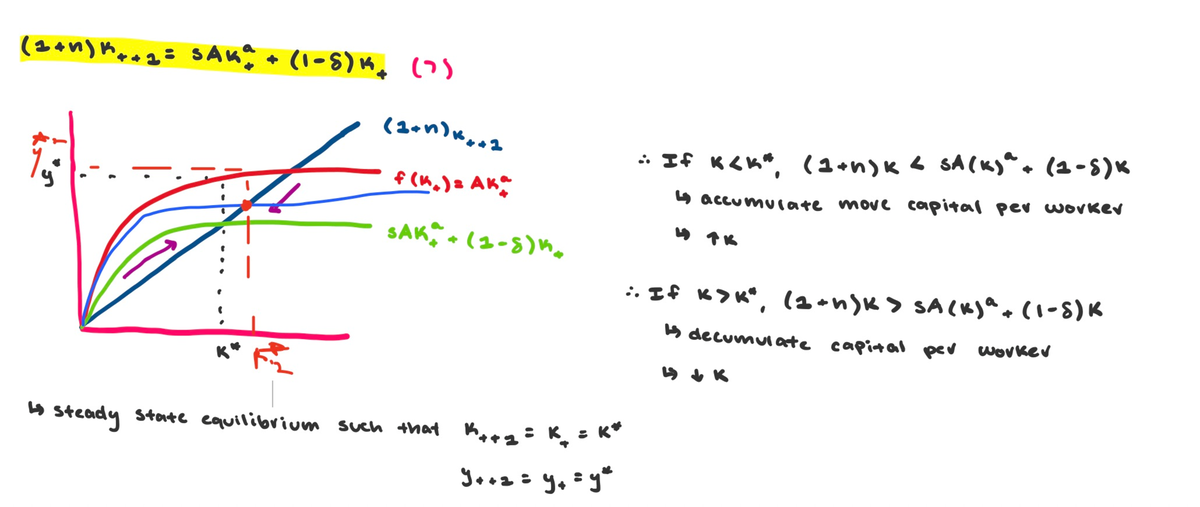 (1+n)K_{t+1} = sAK_t^a + (1-δ)K_t (7)
(1+n)K_{t+1}
y*
y*
f(K_t) = AK_t^a
sAK_t^a + (1-δ)K_t
K*
K*_2
↳ steady state equilibrium such that K_{t+1} = K_t = K*
y_{t+1} = y_t = y*
∴ If K<K*, (1+n)K < sA(K)^a + (1-δ)K
↳ accumulate more capital per worker
↳ ↑K
∴ If K>K*, (1+n)K > sA(K)^a + (1-δ)K
↳ decumulate capital per worker
↳ ↓K